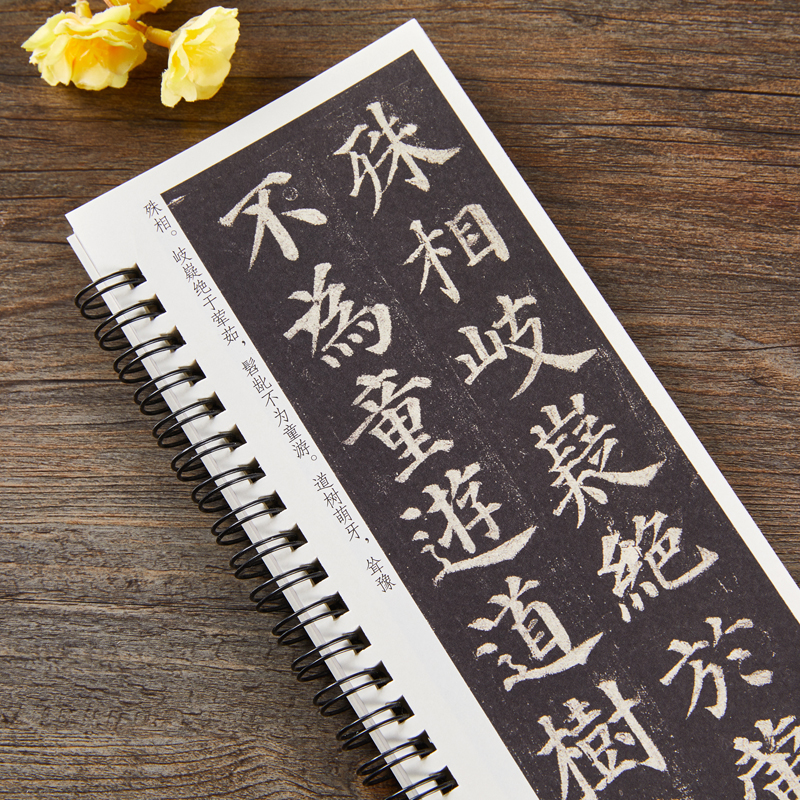 殊相岐嶷絕於
不為童遊道樹
殊相。岐嶷绝于荤茹，髫龀不为童游。道树萌牙，耸豫